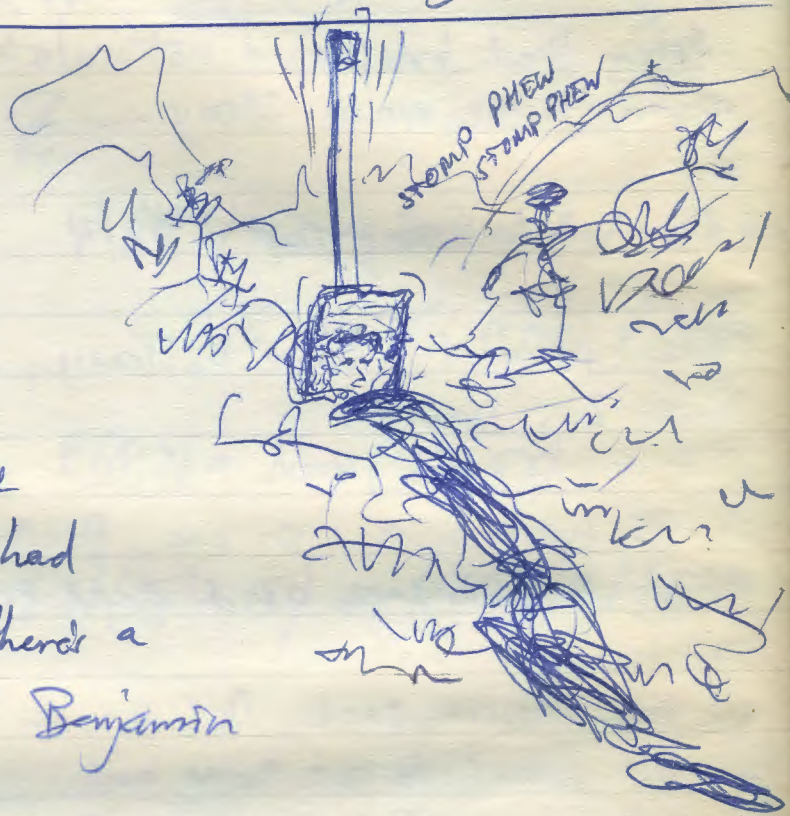 STOMP PHEW
STOMP PHEW
had
there's a
Benjamin